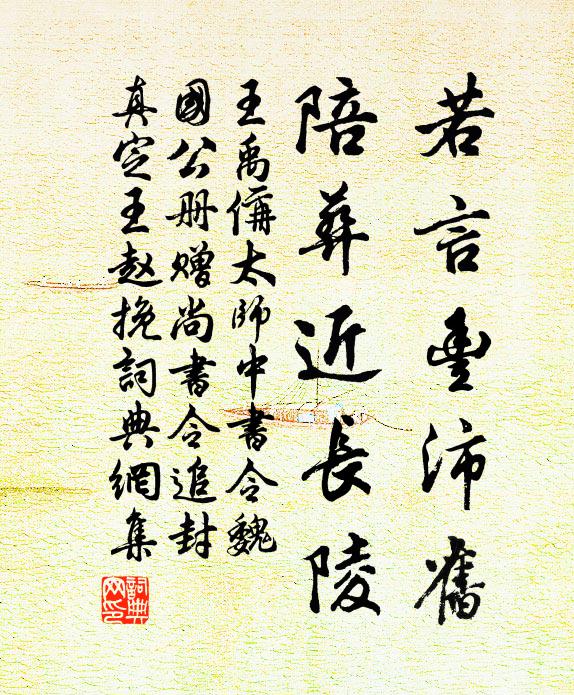 若言豐沛舊
陪葬近長陵
王禹偁太師中書令魏
國公册贈尚書令追封
真定王趙挽詞典網集
詞典
网印